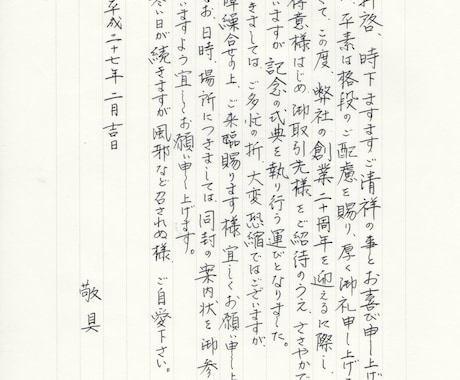 拝啓、時下ますますご清祥の事とお喜び申し上げ
、平素は格段のご配慮を賜り、厚く御礼申し上げ
て、この度、弊社の創業二十周年を迎えるに際し、
得意様はじめ御取引先様をご紹待のうえ、ささやかで
いますが記念の式典を執り行う運びとなりました。
きましては、ご多忙の折、大変恐縮ではございますが、
障繰合せの上、ご来臨賜ります様宜しくお願い申し上
お、日時、場所につきましては、同封の案内状を御参
いますよう宜しくお願い申し上げます。
寒い日が続きますが風邪など召されぬ様 ご自愛下さい。
平成二十七年二月吉日
敬具